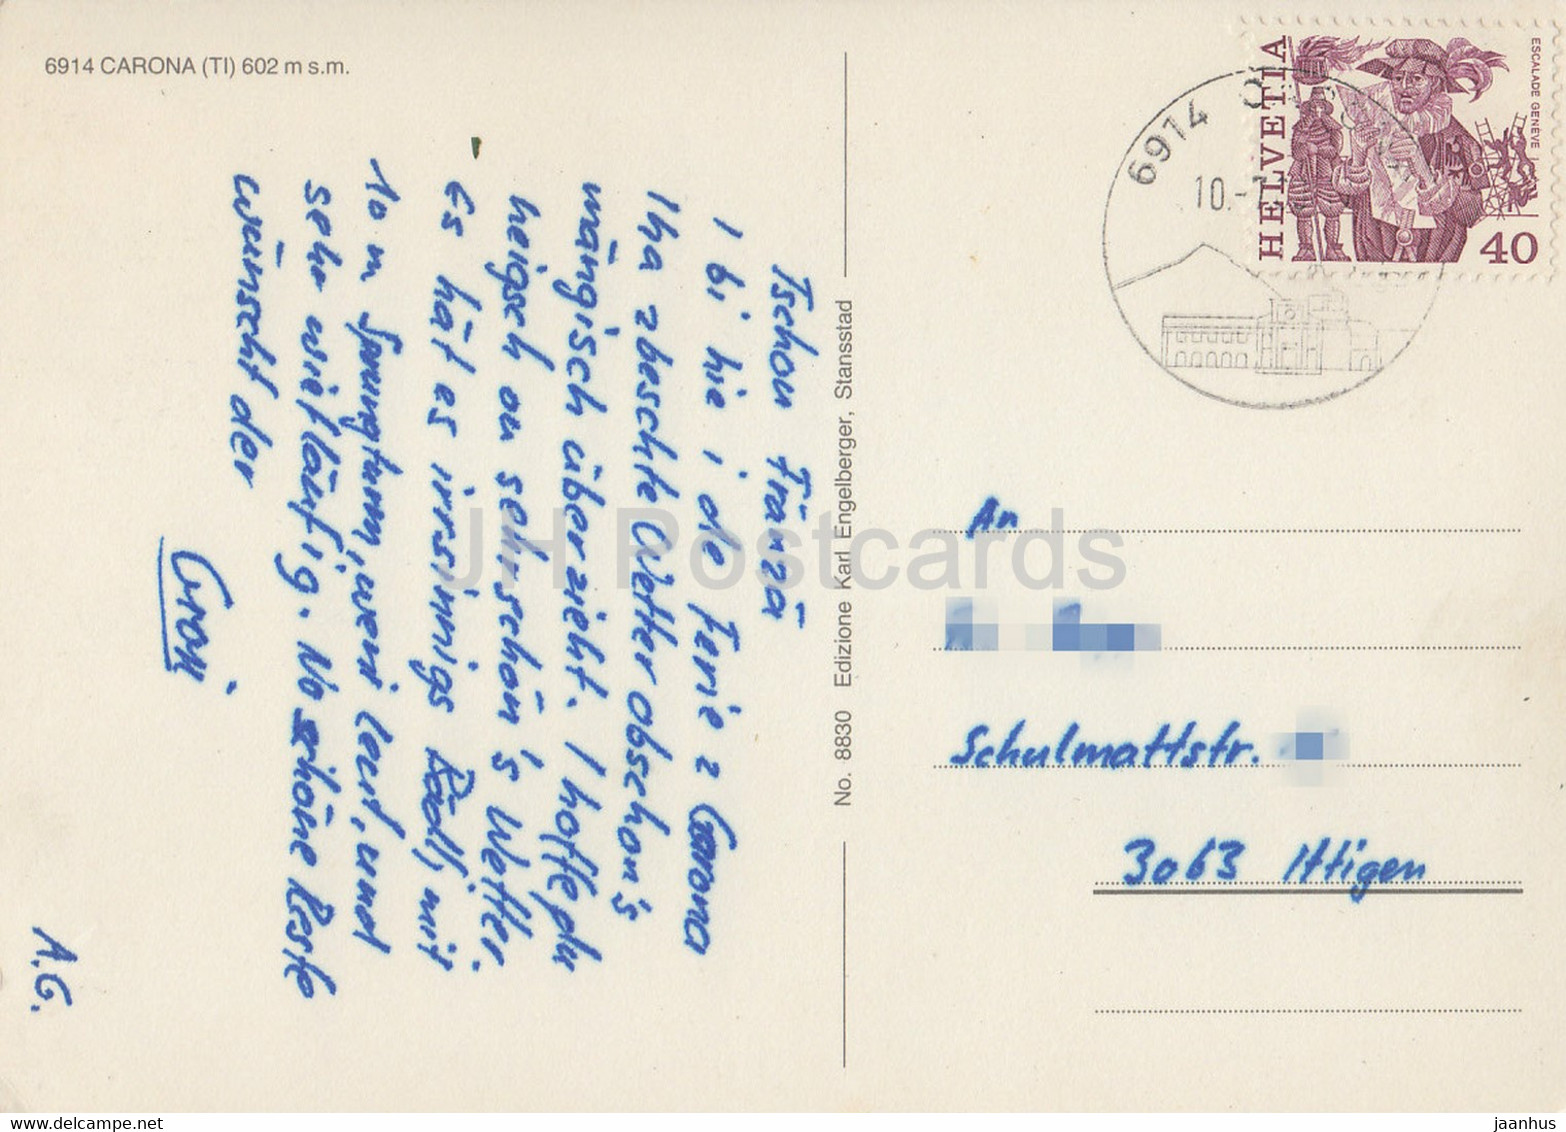 6914 CARONA (TI) 602 m s.m.
Tschou Fränzä
I bi hie i de Ferie z Carona
I ha z beschte Wetter obschon's
mängisch überzieht. I hoffe du
heigsch ou sehr schön's Wetter.
Es hät es irrsinnigs Bädli, mit
10 m Sprungturm, wenn leert, und
sehr wielläufig. No schöne Reste
wünscht der
A.G.
No. 8830 Edizione Karl Engelberger, Stansstad
HELVETIA
ESCALADE GENÈVE
40
6914
10.-7.
An
Schulmattstr.
3063 Ittigen
JH Postcards
jaanhus